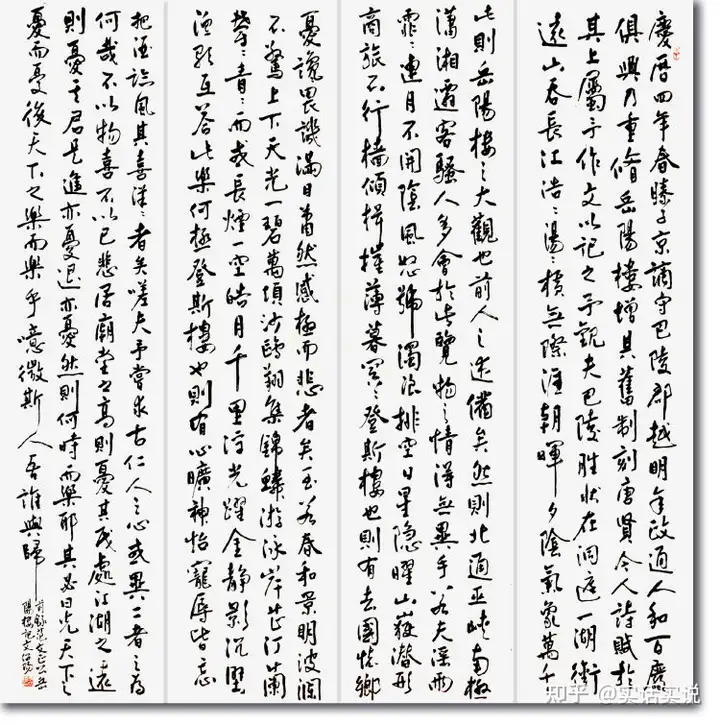 慶曆四年春滕子京謫守巴陵郡越明年政通人和百廢
俱興乃重脩岳陽樓增其舊制刻唐賢今人詩賦於
其上屬予作文以記之予觀夫巴陵胜狀在洞庭一湖銜
遠山吞長江浩〻湯〻橫無際涯朝暉夕陰氣象萬千
此則岳陽樓之大觀也前人之述備矣然則北通巫峽南極
瀟湘遷客騷人多會於此覽物之情得無異乎若夫淫雨
霏〻連月不開陰風怒號濁浪排空日星隱曜山嶽潛形
商旅不行檣傾楫摧薄暮冥〻登斯樓也則有去國懷鄉
憂讒畏譏滿目蕭然感極而悲者矣至若春和景明波瀾
不驚上下天光一碧萬頃沙鷗翔集錦鱗游泳岸芷汀蘭
郁〻青〻而或長煙一空皓月千里浮光躍金靜影沉璧
漁歌互答此樂何極登斯樓也則有心曠神怡寵辱皆忘
把酒臨風其喜洋〻者矣嗟夫予嘗求古仁人之心或異二者之為
何哉不以物喜不以己悲居廟堂之高則憂其民處江湖之遠
則憂其君是進亦憂退亦憂然則何時而樂耶其必曰先天下之
憂而憂後天下之樂而樂乎噫微斯人吾誰與歸
前錄范文正公岳
陽樓記文
知乎 @实话实说